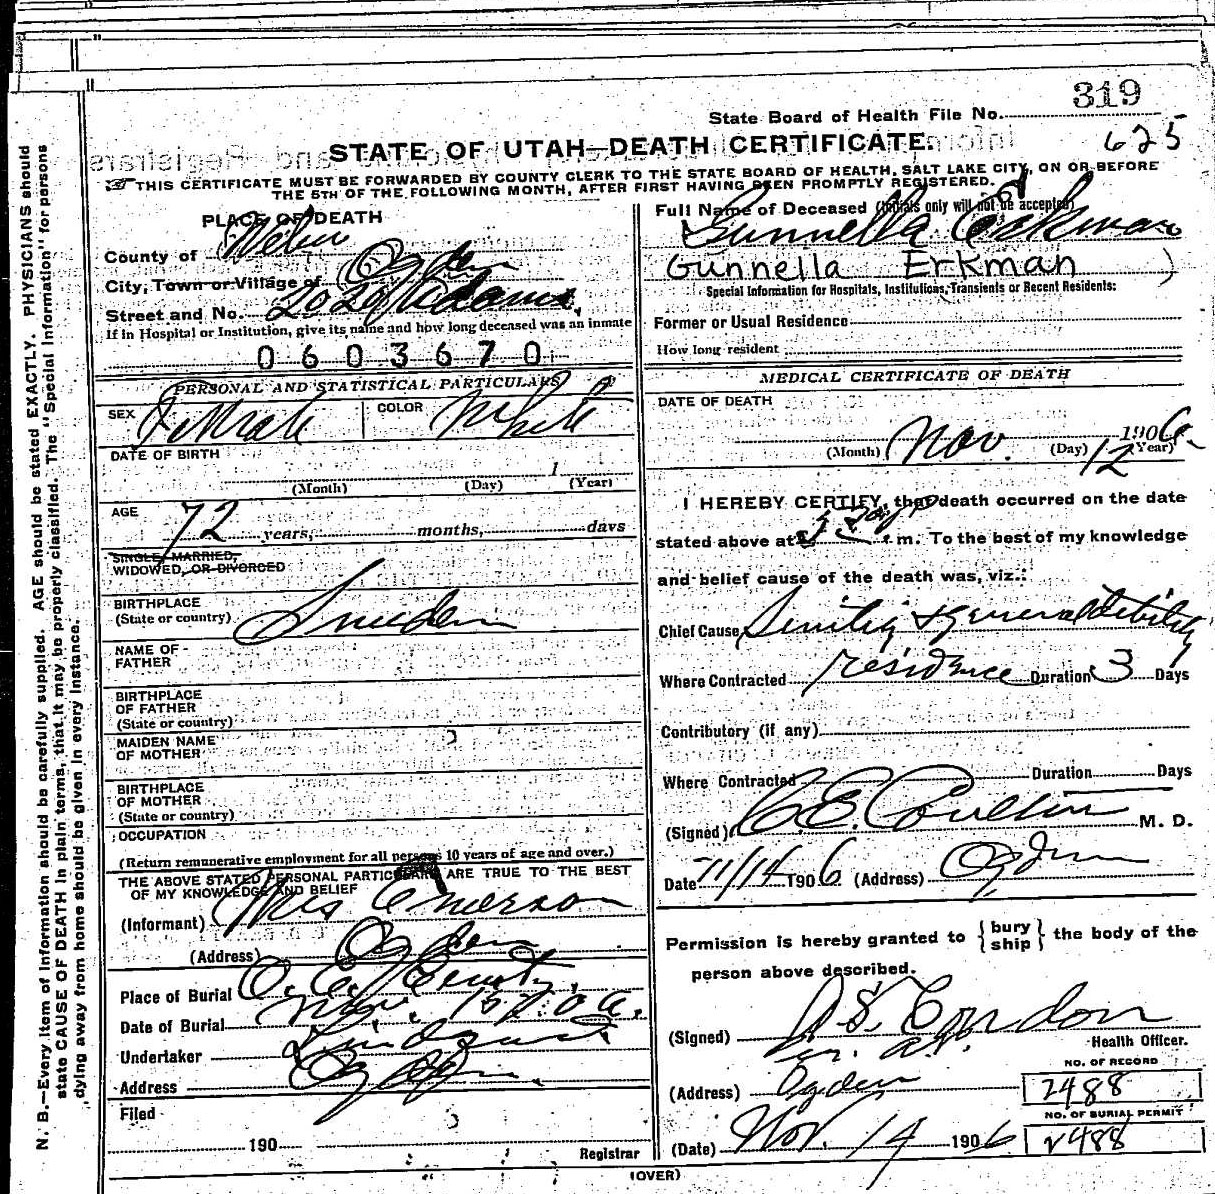 319
State Board of Health File No.
625
STATE OF UTAH—DEATH CERTIFICATE.
THIS CERTIFICATE MUST BE FORWARDED BY COUNTY CLERK TO THE STATE BOARD OF HEALTH, SALT LAKE CITY, ON OR BEFORE
THE 5TH OF THE FOLLOWING MONTH, AFTER FIRST HAVING BEEN PROMPTLY REGISTERED.
N. B.—Every item of information should be carefully supplied. AGE should be stated EXACTLY. PHYSICIANS should
state CAUSE OF DEATH in plain terms, that it may be properly classified. The "Special Information" for persons
dying away from home should be given in every instance.
PLACE OF DEATH
County of Weber
City, Town or Village of Ogden
Street and No. 2020 Adams
If in Hospital or Institution, give its name and how long deceased was an inmate
0603670
PERSONAL AND STATISTICAL PARTICULARS
SEX Female COLOR White
DATE OF BIRTH
1
(Month) (Day) (Year)
AGE 72 years, months, days
SINGLE, MARRIED,
WIDOWED, OR DIVORCED
BIRTHPLACE
(State or country) Sweden
NAME OF
FATHER
BIRTHPLACE
OF FATHER
(State or country)
MAIDEN NAME
OF MOTHER
BIRTHPLACE
OF MOTHER
(State or country)
OCCUPATION
(Return remunerative employment for all persons 10 years of age and over.)
THE ABOVE STATED PERSONAL PARTICULARS ARE TRUE TO THE BEST
OF MY KNOWLEDGE AND BELIEF
(Informant) Mrs Emerson
(Address) Ogden
Place of Burial O. C. Cemetry.
Date of Burial Nov. 15 190 6.
Undertaker Lindquist
Address Ogden.
Filed
190
Registrar
Full Name of Deceased (Initials only will not be accepted)
Gunnella Erkman
Gunnella Erkman )
Special Information for Hospitals, Institutions, Transients or Recent Residents:
Former or Usual Residence
How long resident
MEDICAL CERTIFICATE OF DEATH
DATE OF DEATH
Nov. 12 1906.
(Month) (Day) (Year)
I HEREBY CERTIFY, that death occurred on the date
stated above at m. To the best of my knowledge
and belief cause of the death was, viz.:
Chief Cause Senility & general debility
Where Contracted residence Duration 3 Days
Contributory (if any)
Where Contracted Duration Days
(Signed) C. E. Coulter M. D.
Date 11/14 1906 (Address) Ogden
Permission is hereby granted to { bury ship } the body of the
person above described.
(Signed) Condon
Health Officer.
NO. OF RECORD
(Address) Ogden 2488
NO. OF BURIAL PERMIT
(Date) Nov. 14 1906 2488
(OVER)